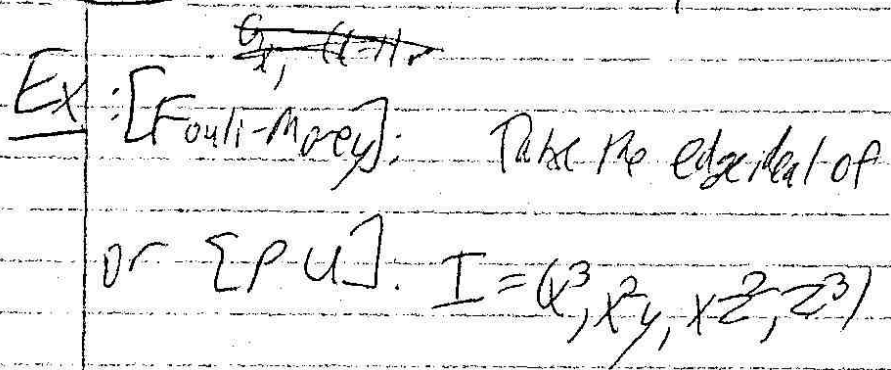 Ex: [Fouli-Morey]: Take the edge ideal of
or [PU]. I = (x³, x²y, xz², z³)